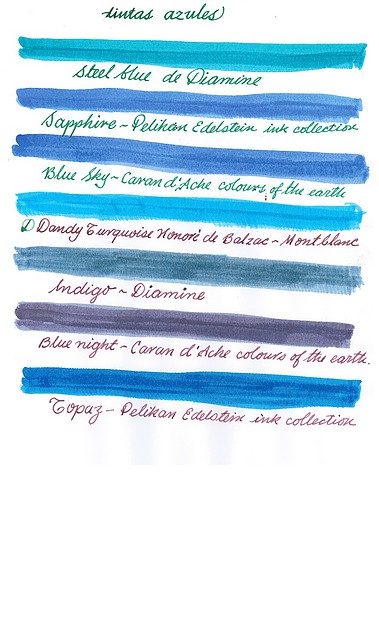 tintas azules
Steel blue de Diamine
Sapphire ~ Pelikan Edelstein ink collection
Blue Sky ~ Caran d'Ache colours of the earth
Dandy Turquoise Honoré de Balzac ~ Montblanc
Indigo ~ Diamine
Blue night ~ Caran d'Ache colours of the earth.
Topaz ~ Pelikan Edelstein ink collection